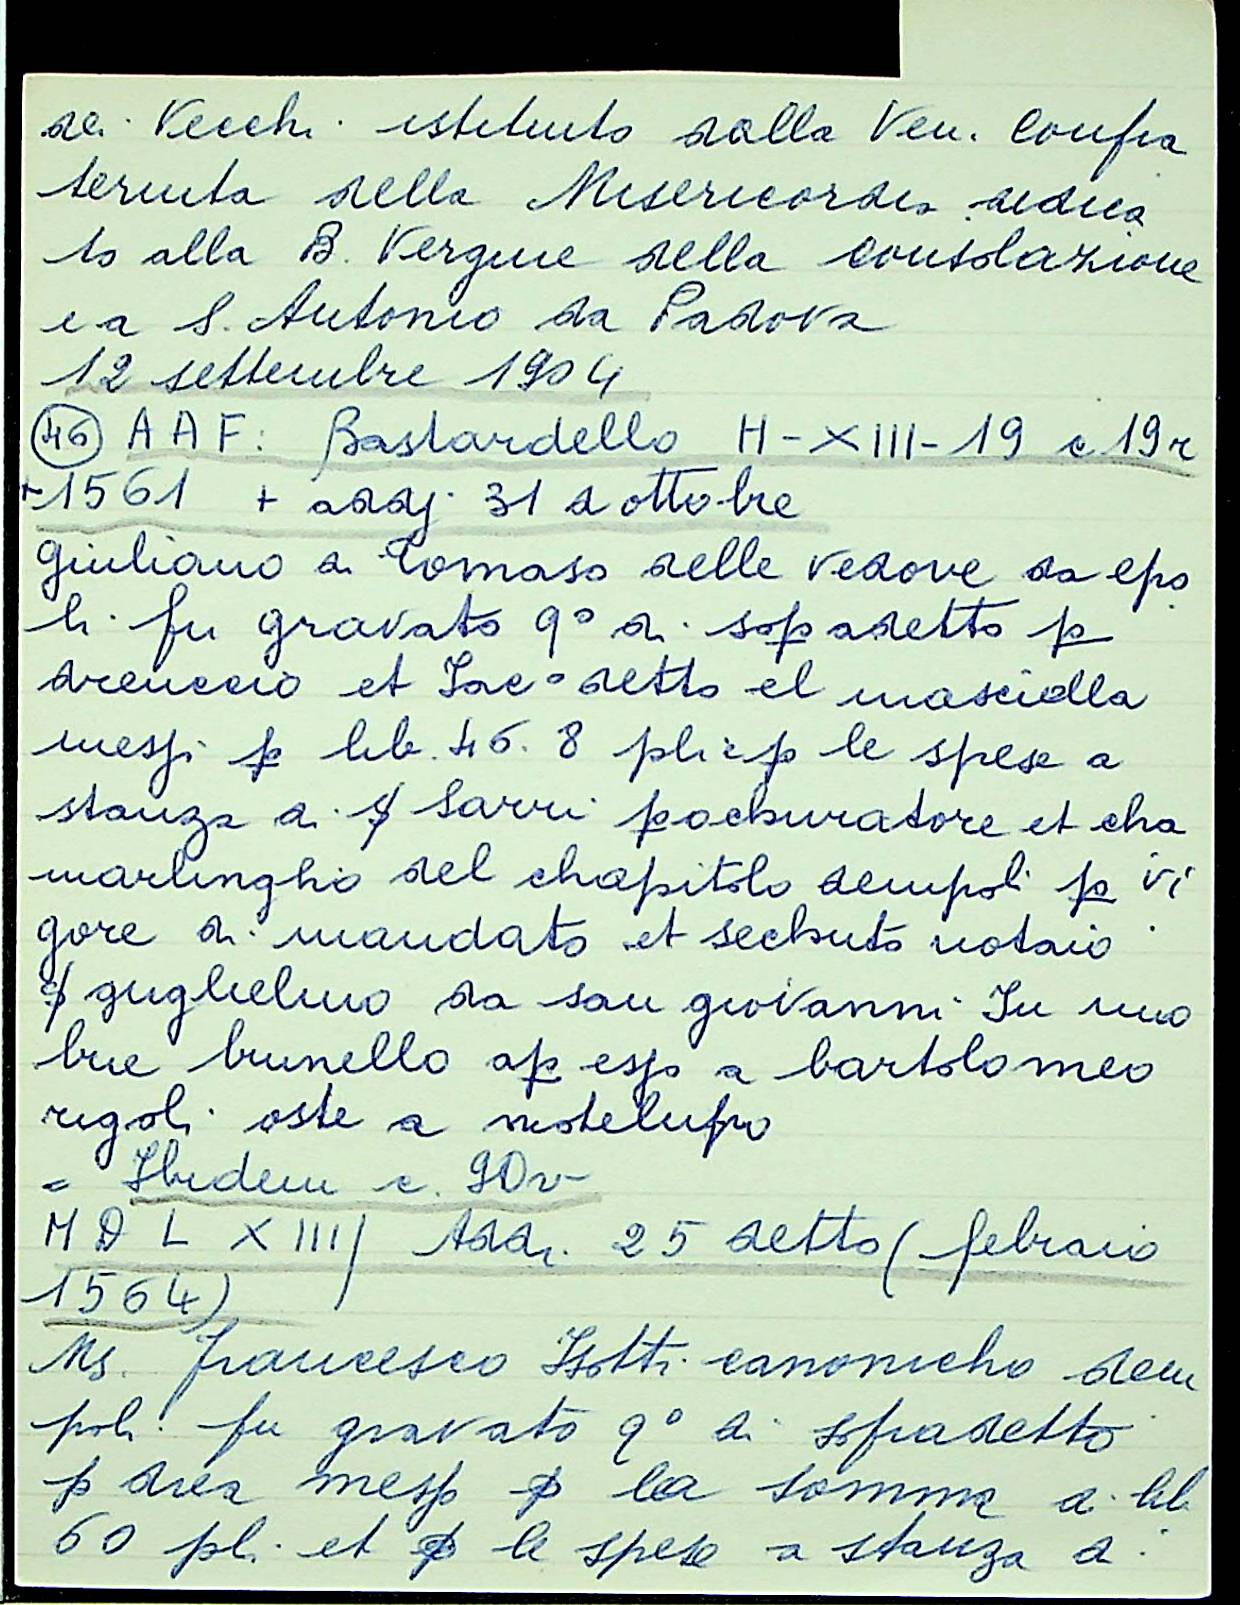 dei Vecchi istituito dalla Ven. Confra
ternita della Misericordia dedica
to alla B. Vergine della Consolazione
e a S. Antonio da Padova
12 settembre 1904
(46) A A F: Bastardello H-XIII-19 c 19r
+1561 + addj 31 d ottobre
Giuliano di Tomaso delle vedove da epo
li fu gravato q° di sopadetto p
drenccio et Jac° detto el masciolla
messi p lib. 46. 8 pli e p le spese a
stanza di Sarri pochuratore et cha
marlingho del chapitolo dempoli p vi
gore di mandato et sechuto notaio
guglielmo da san giovanni In uno
bue brunello ap esso a bartolomeo
rigoli oste a motelupo
= Ibidem c. 90v
M D L X IIII / Addi. 25 detto (febraio
1564)
Ms. Francesco Isotti canonicho dem
poli fu gravato q° di sopradetto
p drea messo p la somma di lib
60 pli et p le spese a stanza di